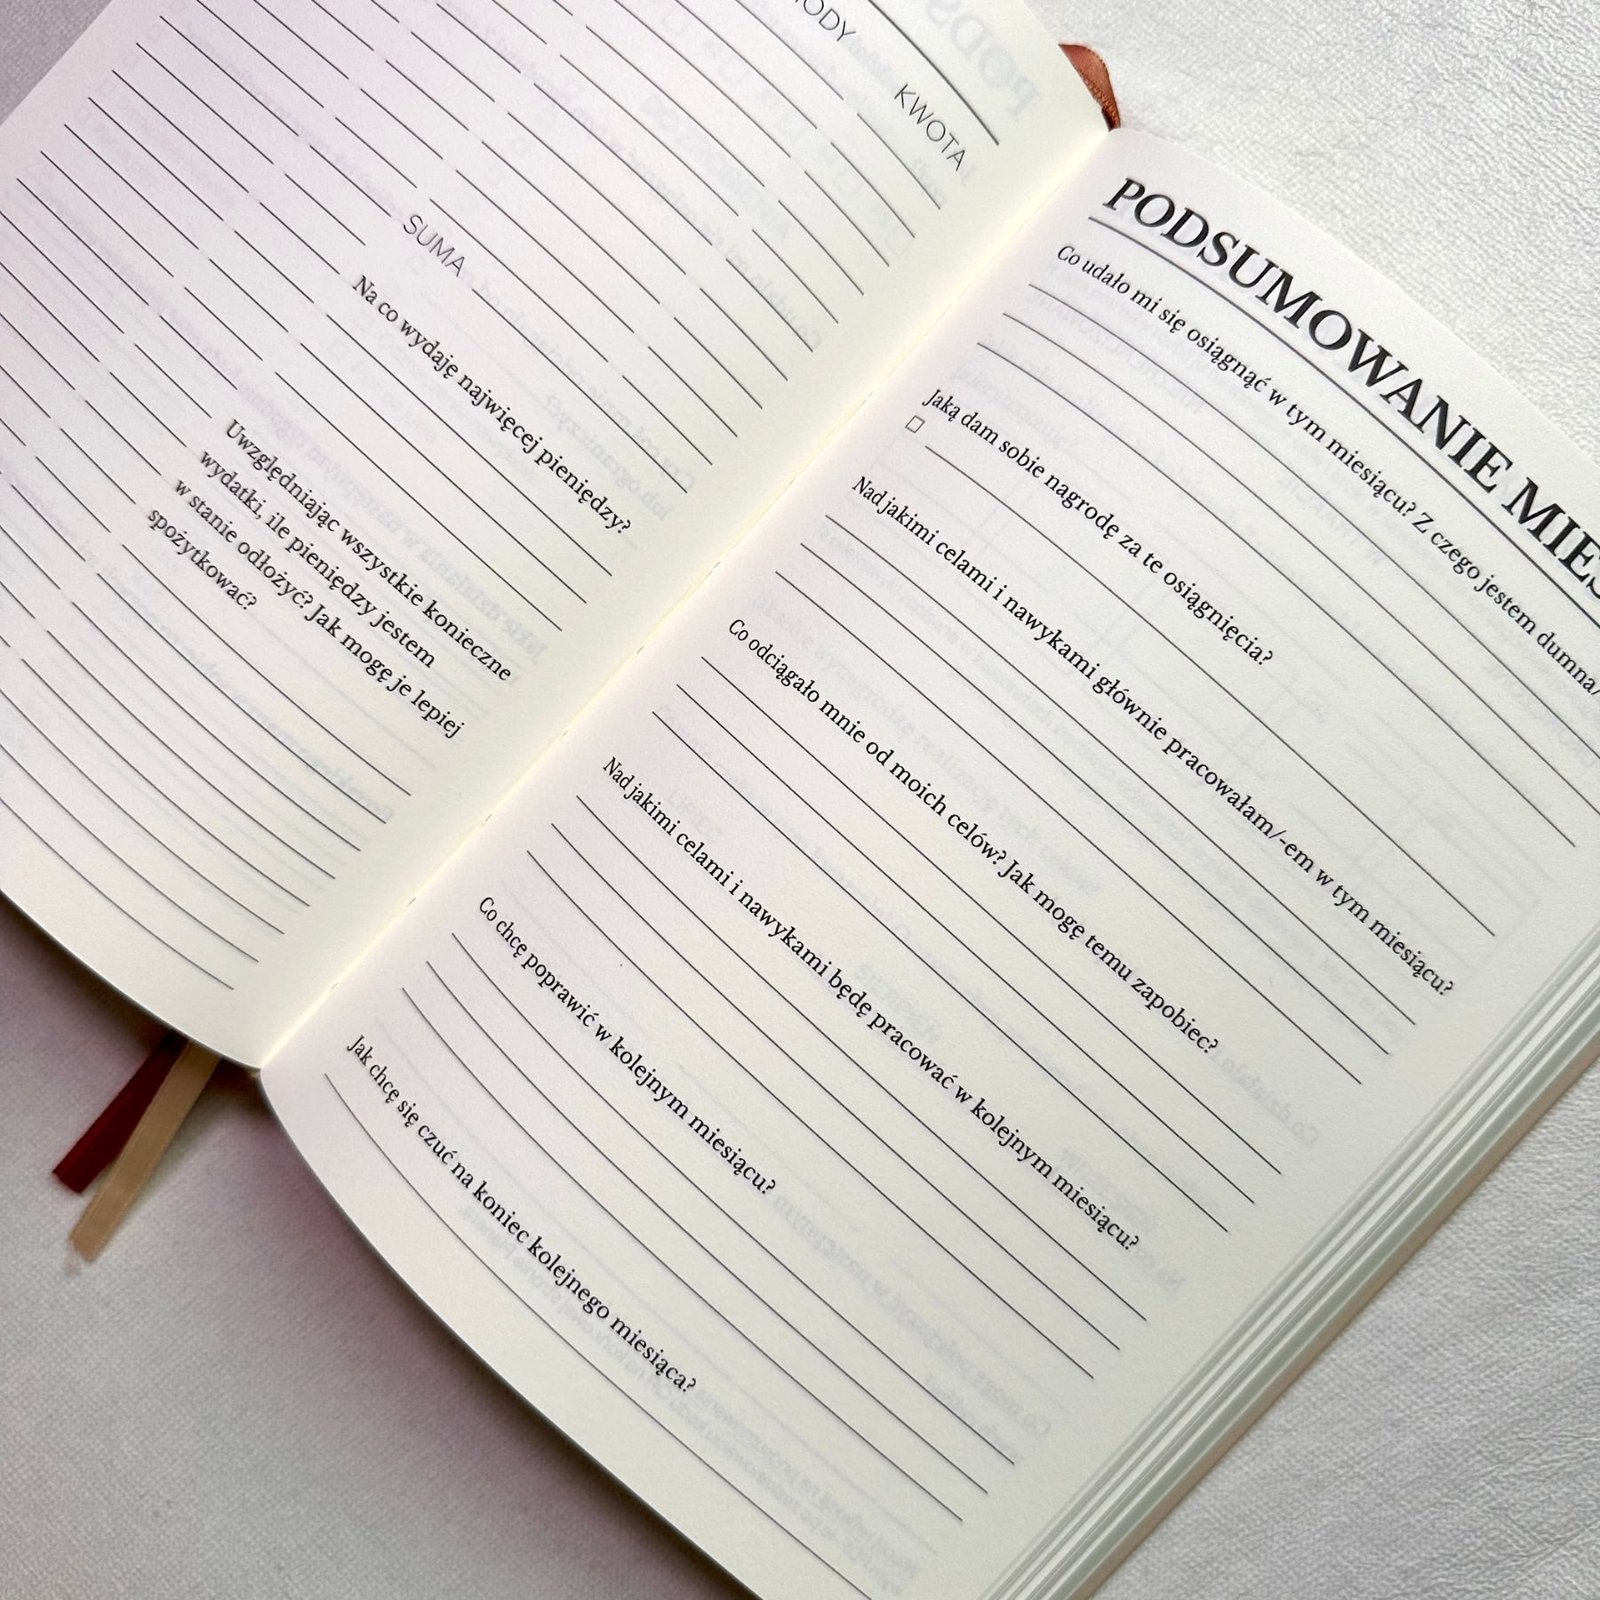 KWOTA
SUMA
Na co wydaję najwięcej pieniędzy?
Uwzględniając wszystkie konieczne
wydatki, ile pieniędzy jestem
w stanie odłożyć? Jak mogę je lepiej
spożytkować?
PODSUMOWANIE
Co udało mi się osiągnąć w tym miesiącu? Z czego jestem dumna/
Jaką dam sobie nagrodę za te osiągnięcia?
Nad jakimi celami i nawykami głównie pracowałam/-em w tym miesiącu?
Co odciągało mnie od moich celów? Jak mogę temu zapobiec?
Nad jakimi celami i nawykami będę pracować w kolejnym miesiącu?
Co chcę poprawić w kolejnym miesiącu?
Jak chcę się czuć na koniec kolejnego miesiąca?